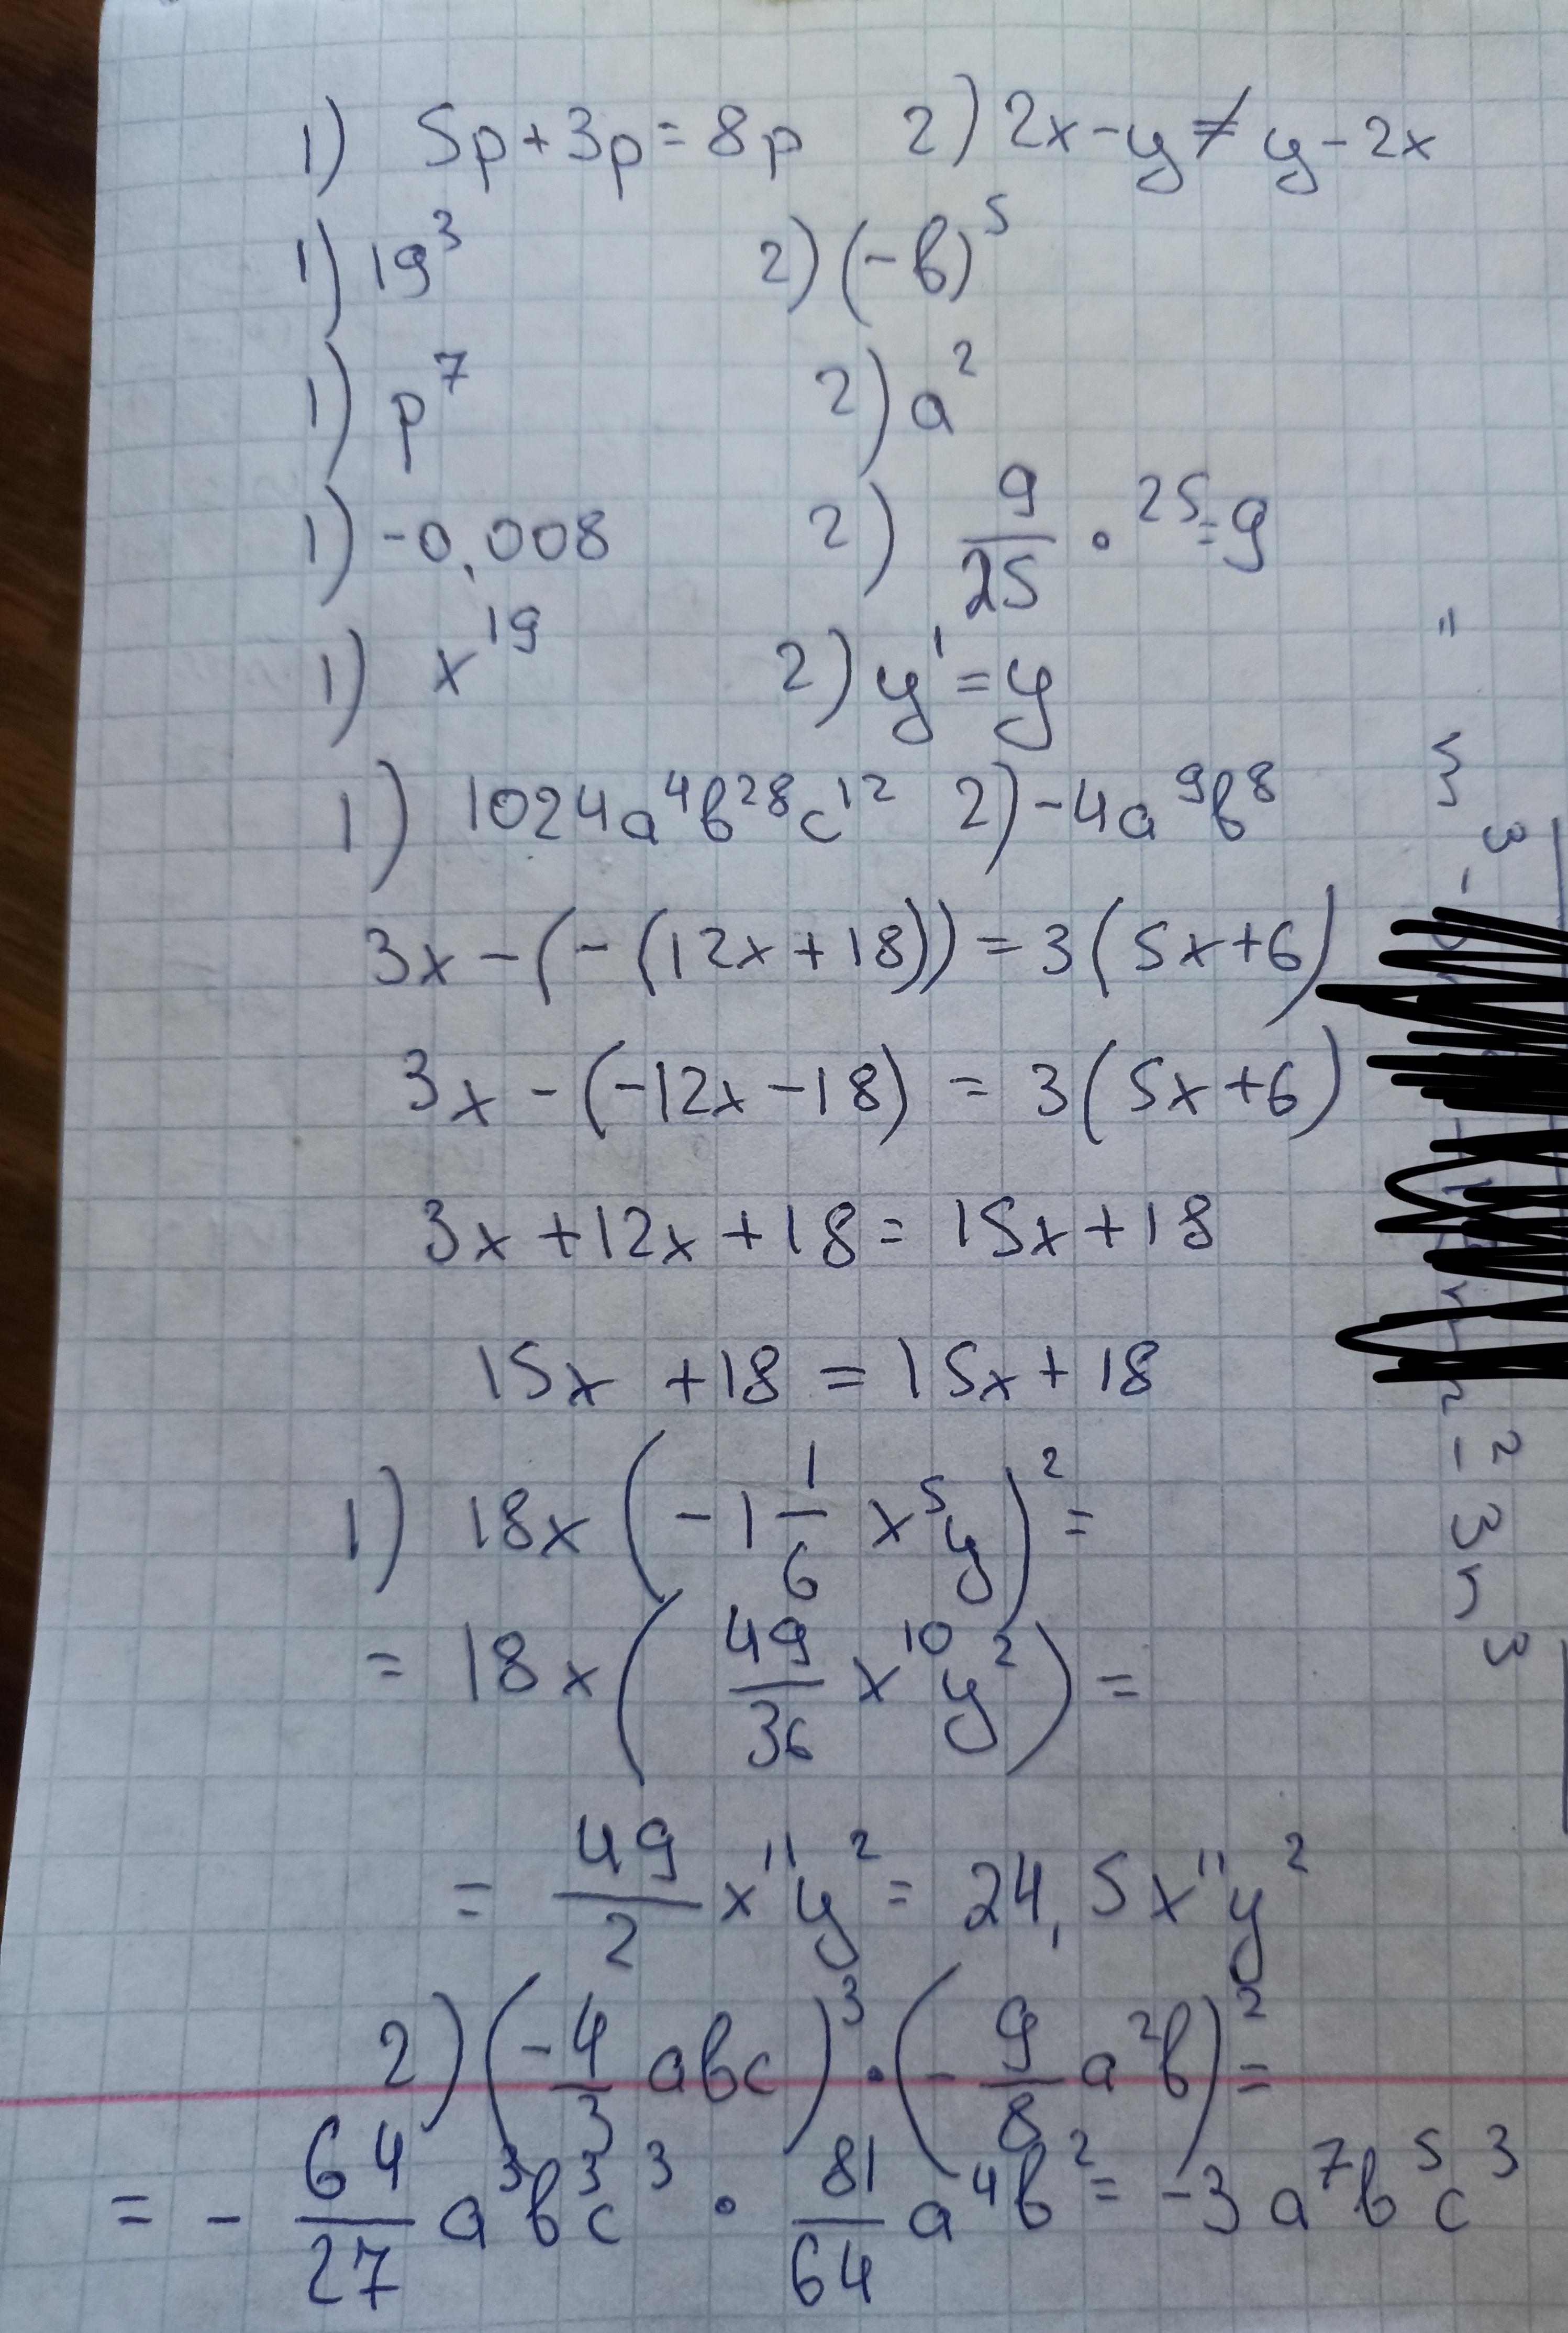 1) 5p+3p=8p 2) 2x-y≠y-2x
1) 19³ 2) (-b)⁵
1) p⁷ 2) a²
1) -0,008 2) 9/25 · 25=9
1) x¹⁹ 2) y¹=y
1) 1024a⁴b²⁸c¹² 2) -4a⁹b⁸
3x-(-(12x+18))=3(5x+6)
3x-(-12x-18)=3(5x+6)
3x+12x+18=15x+18
15x+18=15x+18
1) 18x(-1 1/6 x⁵y)²=
=18x(49/36 x¹⁰y²)=
=49/2 x¹¹y²=24,5x¹¹y²
2) (-4/3 abc)³·(-9/8 a²b)²=
=-64/27 a³b³c³·81/64 a⁴b²=-3a⁷b⁵c³